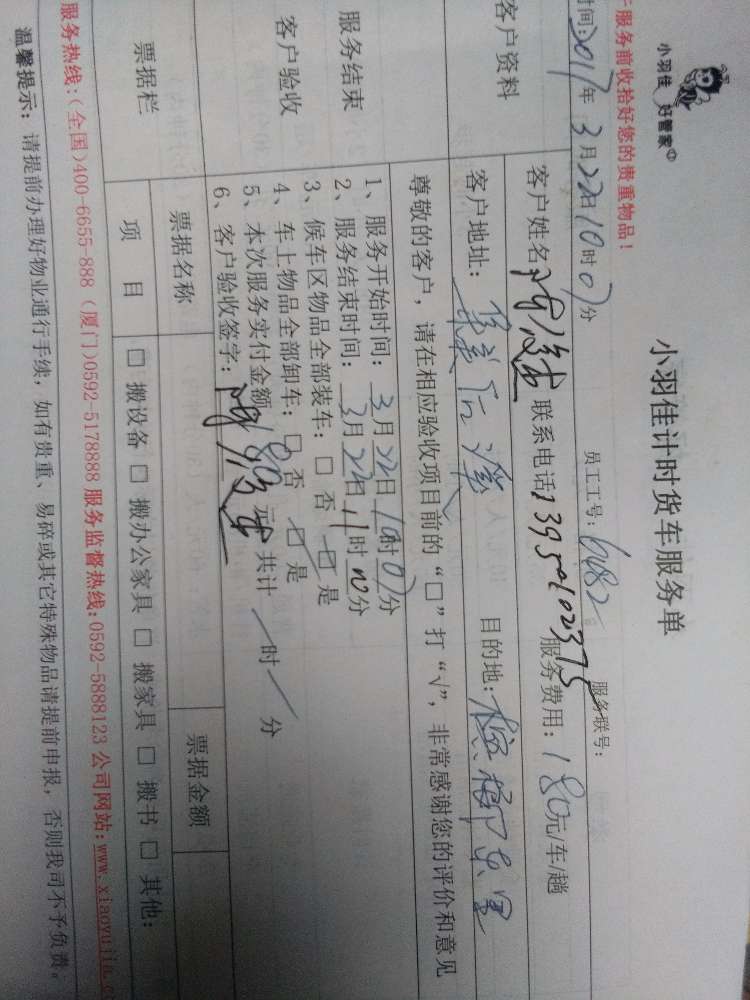 小羽佳 好管家
小羽佳计时货车服务单
服务前收拾好您的贵重物品！
时间：2017年3月22日10时07分 员工工号：6482 服务联号：
客户资料
客户姓名： 联系电话13950102375 服务费用：180元/车/趟
客户地址： 目的地：槟榔东里
尊敬的客户，请在相应验收项目前的“□”打“√”，非常感谢您的评价和意见
服务结束
客户验收
1、服务开始时间：3月22日10时07分
2、服务结束时间：3月22日11时10分
3、候车区物品全部装车：□ 否 □ 是
4、车上物品全部卸车：□ 否 □ 是
5、本次服务实付金额180元 共计 时 分
6、客户验收签字：
票据栏 票据名称 票据金额
项 目 □ 搬设备 □ 搬办公家具 □ 搬家具 □ 搬书 □ 其他：
服务热线：（全国）400-6655-888 （厦门）0592-5178888 服务监督热线：0592-5888123 公司网站：www.xiaoyujia.c
温馨提示：请提前办理好物业通行手续，如有贵重、易碎或其它特殊物品请提前申报，否则我司不予负责。